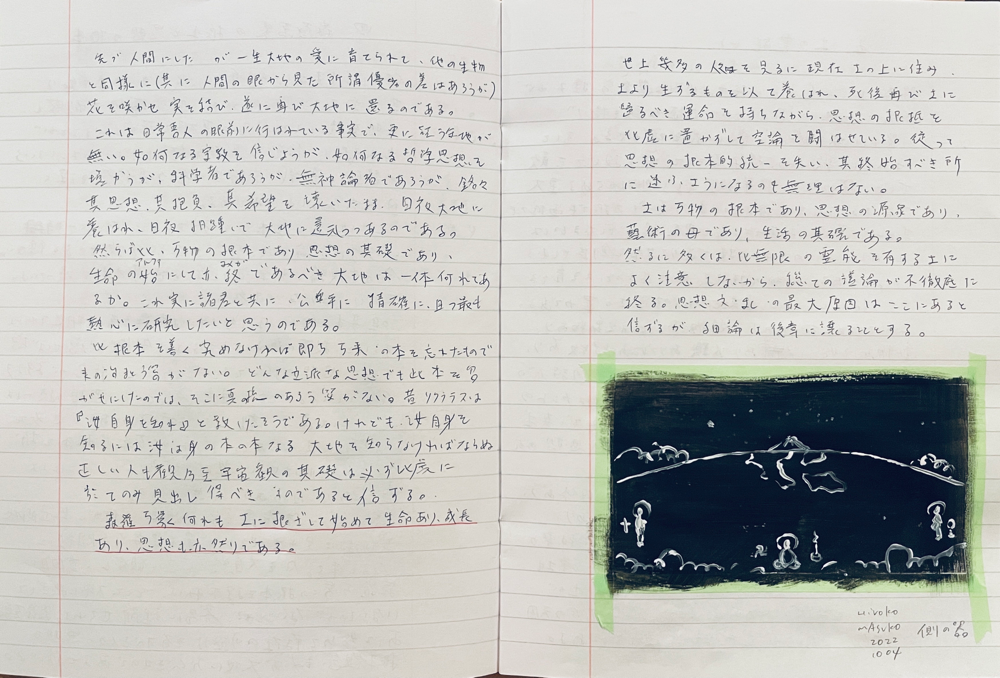 先づ人間にした が一生大地の愛に育てられて、他の生物
と同様に(其に人間の眼から見た所謂優劣の差はあろうが)
花を咲かせ実を結び、遂に再び大地に還るのである。
これは日常吾人の眼前に行はれている事実で、更に疑う余地が
無い。如何なる宗教を信じようが、如何なる哲学思想を
懐かうが、科学者であろうが、無神論者であろうが、銘々
其思想、其抱負、其希望を懐いたまゝ、日夜大地に
養はれ、日夜相踵いで大地に還りつつあるのである。
然らば、万物の根本であり思想の基礎であり、
生命の始にして亦、終であるべき大地は一体何れであ
アルファ オメガ
るか。これ実に諸君と共に、公平に 精確に、且つ最も
熱心に研究したいと思うのである。
此根本を善く究めなければ即ち の本を忘れたもので
あ 筈がない。どんな立派な思想でも此本を
がせにしたのでは、そこに真 のあろう筈がない。昔ソクラテスは
『汝自身を知れ』と教へたそうである。けれども、汝自身を
知るには汝は身の本の本なる大地を知らなければならぬ
正しい人生観乃至宇宙観の基礎は必ず此処に
於てのみ見出し得べきものであると信ずる。
森羅万象何れも土に根ざして始めて生命あり、成長
あり、思想も亦然りである。
世上幾多の人を見るに現在土の上に住み、
土より生ずるものを以て養はれ、死後再び土に
還るべき運命を持ちながら、思想の根拠を
此処に置かずして空論を闘はせている。従って
思想の根本的統一を失い、其終始すべき所
に迷ふようになるのも無理はない。
土は万物の根本であり、思想の源泉であり、
藝術の母であり、生活の基礎である。
然るに多くは、此無限の霊能を有する土に
よく注意しないから、総ての議論が不徹底に
終る。思想 の最大原因はここにあると
信ずるが 細論は後章に譲ることとする。
Hiroko
mAsuko
2022
1004
側の